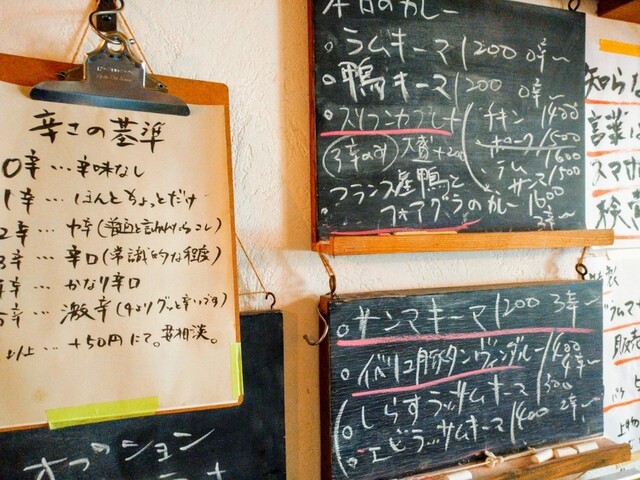 辛さの基準
0辛…辛味なし
1辛…ほんとちょっとだけ
2辛…中辛(
3辛…辛口(常識的な程度)
4辛…かなり辛口
5辛…激辛(4よりグッと辛いです)
以上…+50円にて。要相談。
オプション
本日のカレー
ラムキーマ 1200 0辛〜
鴨キーマ 1200 0辛〜
スリランカプレート
チキン 1400
ポーク 1500
ラム 1600
サンマ 1500
3辛のみ 大盛+200
フランス産鴨と
フォアグラのカレー 1600
3辛〜
サンマキーマ 1200 3辛〜
イベリコ豚タンヴィンダルー 1400
4辛〜
しらすラッサムキーマ 1300
エビラッサムキーマ 1400 2辛〜
知らな
言葉は
スマホ
検索